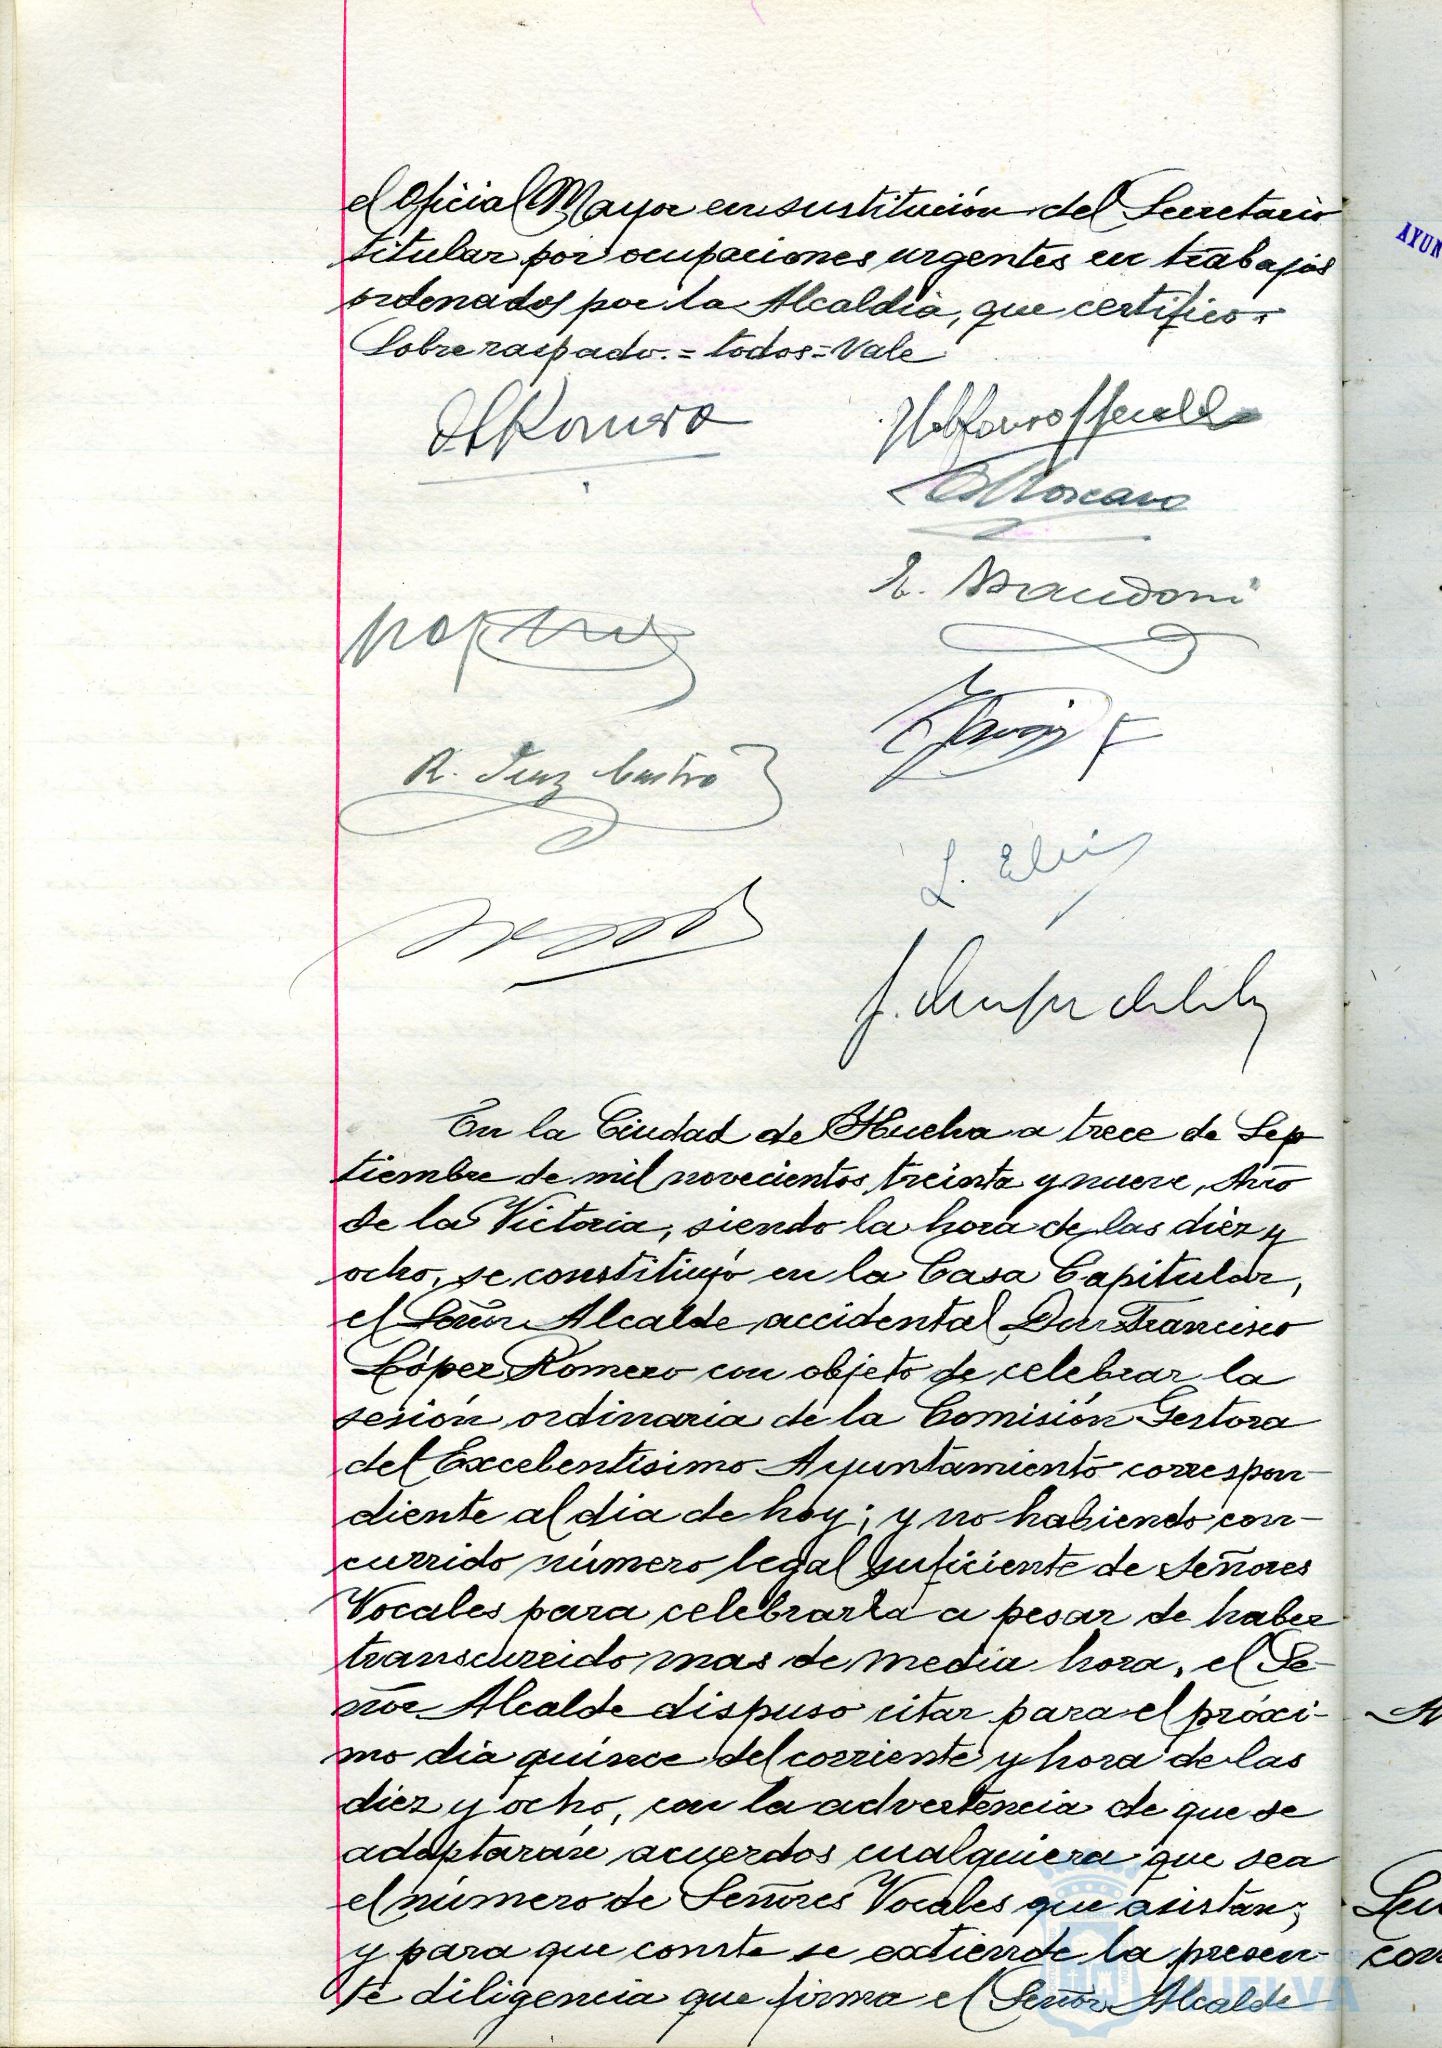 el Oficial Mayor en sustitución del Secretario
titular por ocupaciones urgentes en trabajos
ordenados por la Alcaldia, que certifico.
Sobre raspado.=todos=Vale
Romero
R. Diaz Castro
AYUN
En la Ciudad de Huelva a trece de Sep
tiembre de mil novecientos treinta y nueve, Año
de la Victoria, siendo la hora de las diez y
ocho, se constituyó en la Casa Capitular,
el Señor Alcalde accidental Don Francisco
López Romero con objeto de celebrar la
sesión ordinaria de la Comisión Gestora
del Excelentisimo Ayuntamiento correspon-
diente al dia de hoy; y no habiendo con-
currido número legal suficiente de Señores
Vocales para celebrarla a pesar de haber
transcurrido mas de media hora, el Se-
ñor Alcalde dispuso citar para el próxi-
mo dia quince del corriente y hora de las
diez y ocho, con la advertencia de que se
adoptarán acuerdos cualquiera que sea
el número de Señores Vocales que asistan;
y para que conste se extiende la presen-
te diligencia que firma el Señor Alcalde
HUELVA